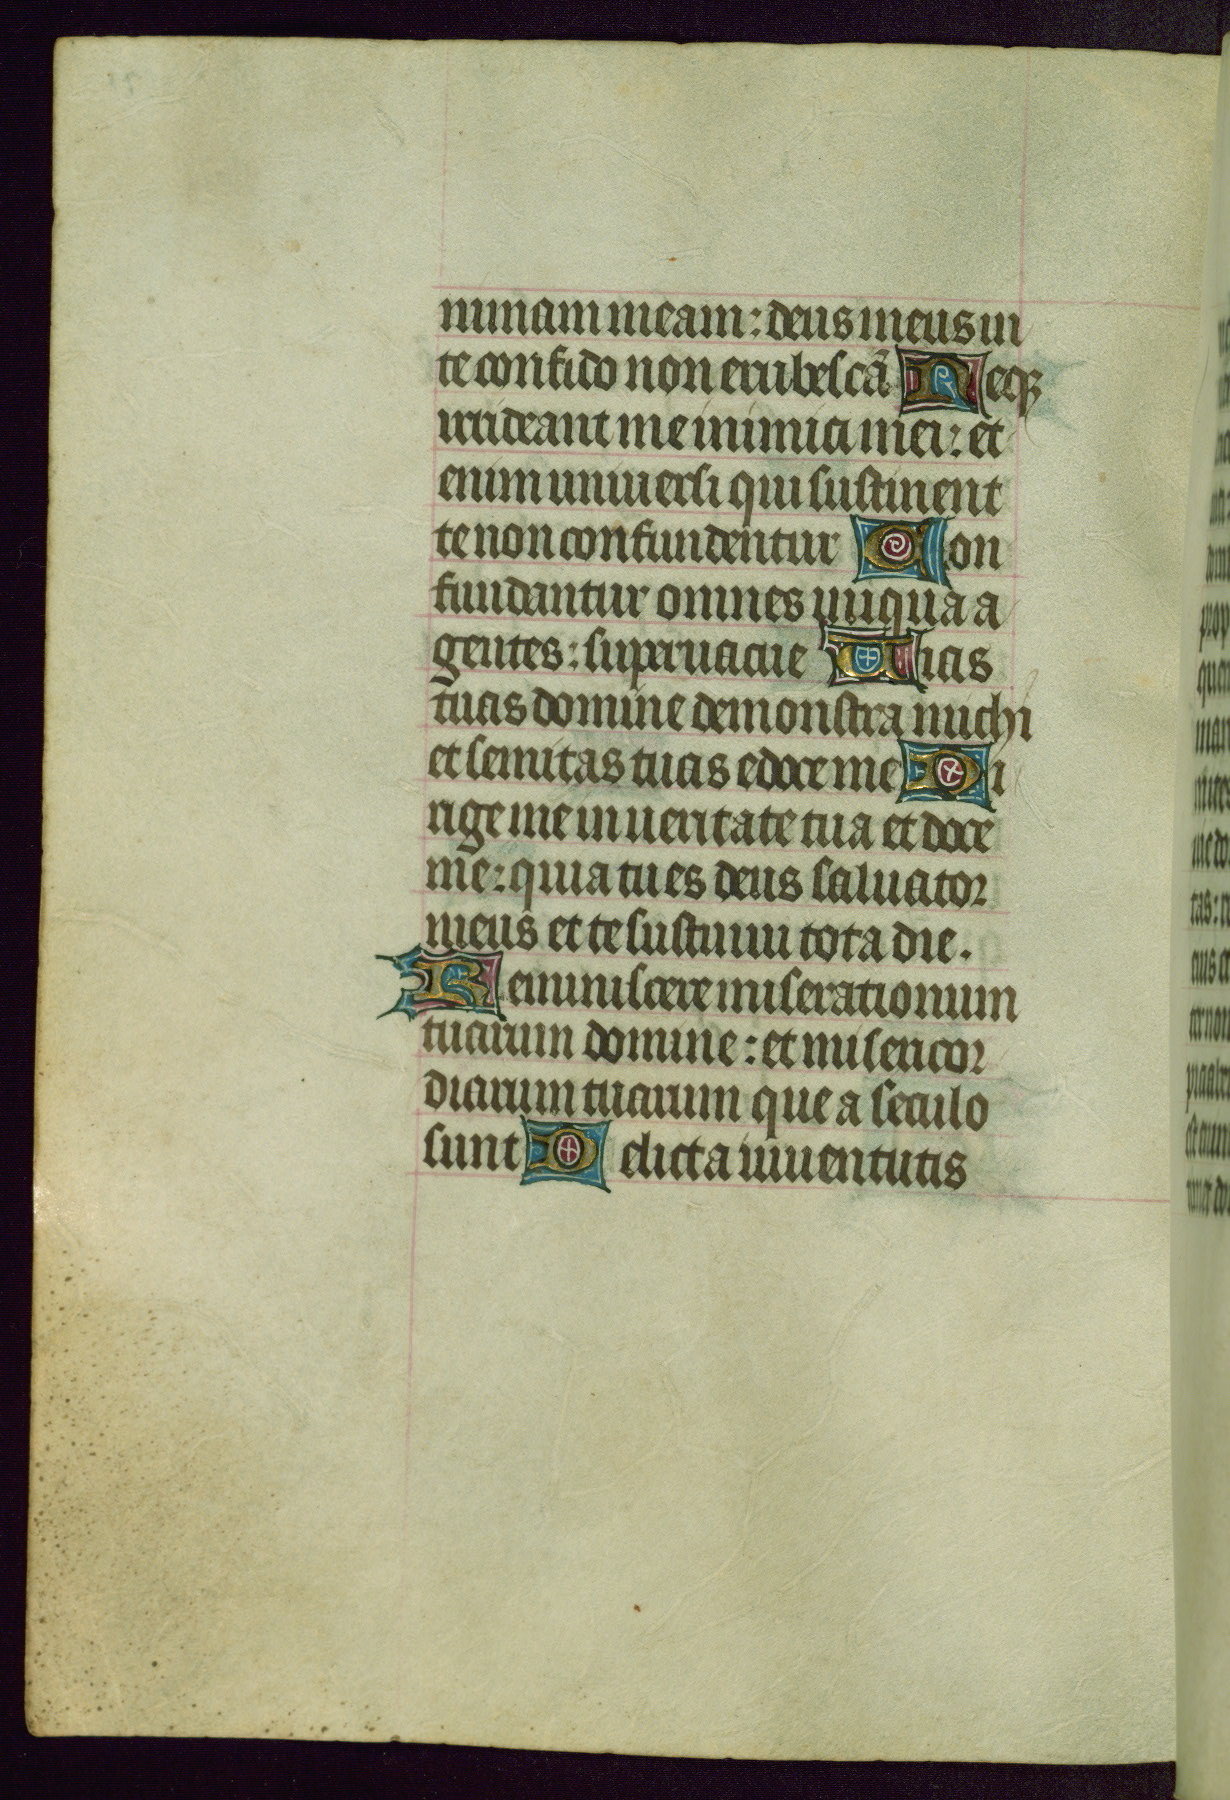 nimam meam: deus meus in
te confido non erubescā Neqꝫ
irrideant me inimici mei: et
enim universi qui sustinent
te non confundentur Con
fundantur omnes iniqua a
gentes: supervacue Vias
tuas domine demonstra michi
et semitas tuas edoce me Di
rige me in veritate tua et doce
me: quia tu es deus salvator
meus et te sustinui tota die.
Reminiscere miserationum
tuarum domine: et misericor
diarum tuarum que a seculo
sunt Delicta iuventutis